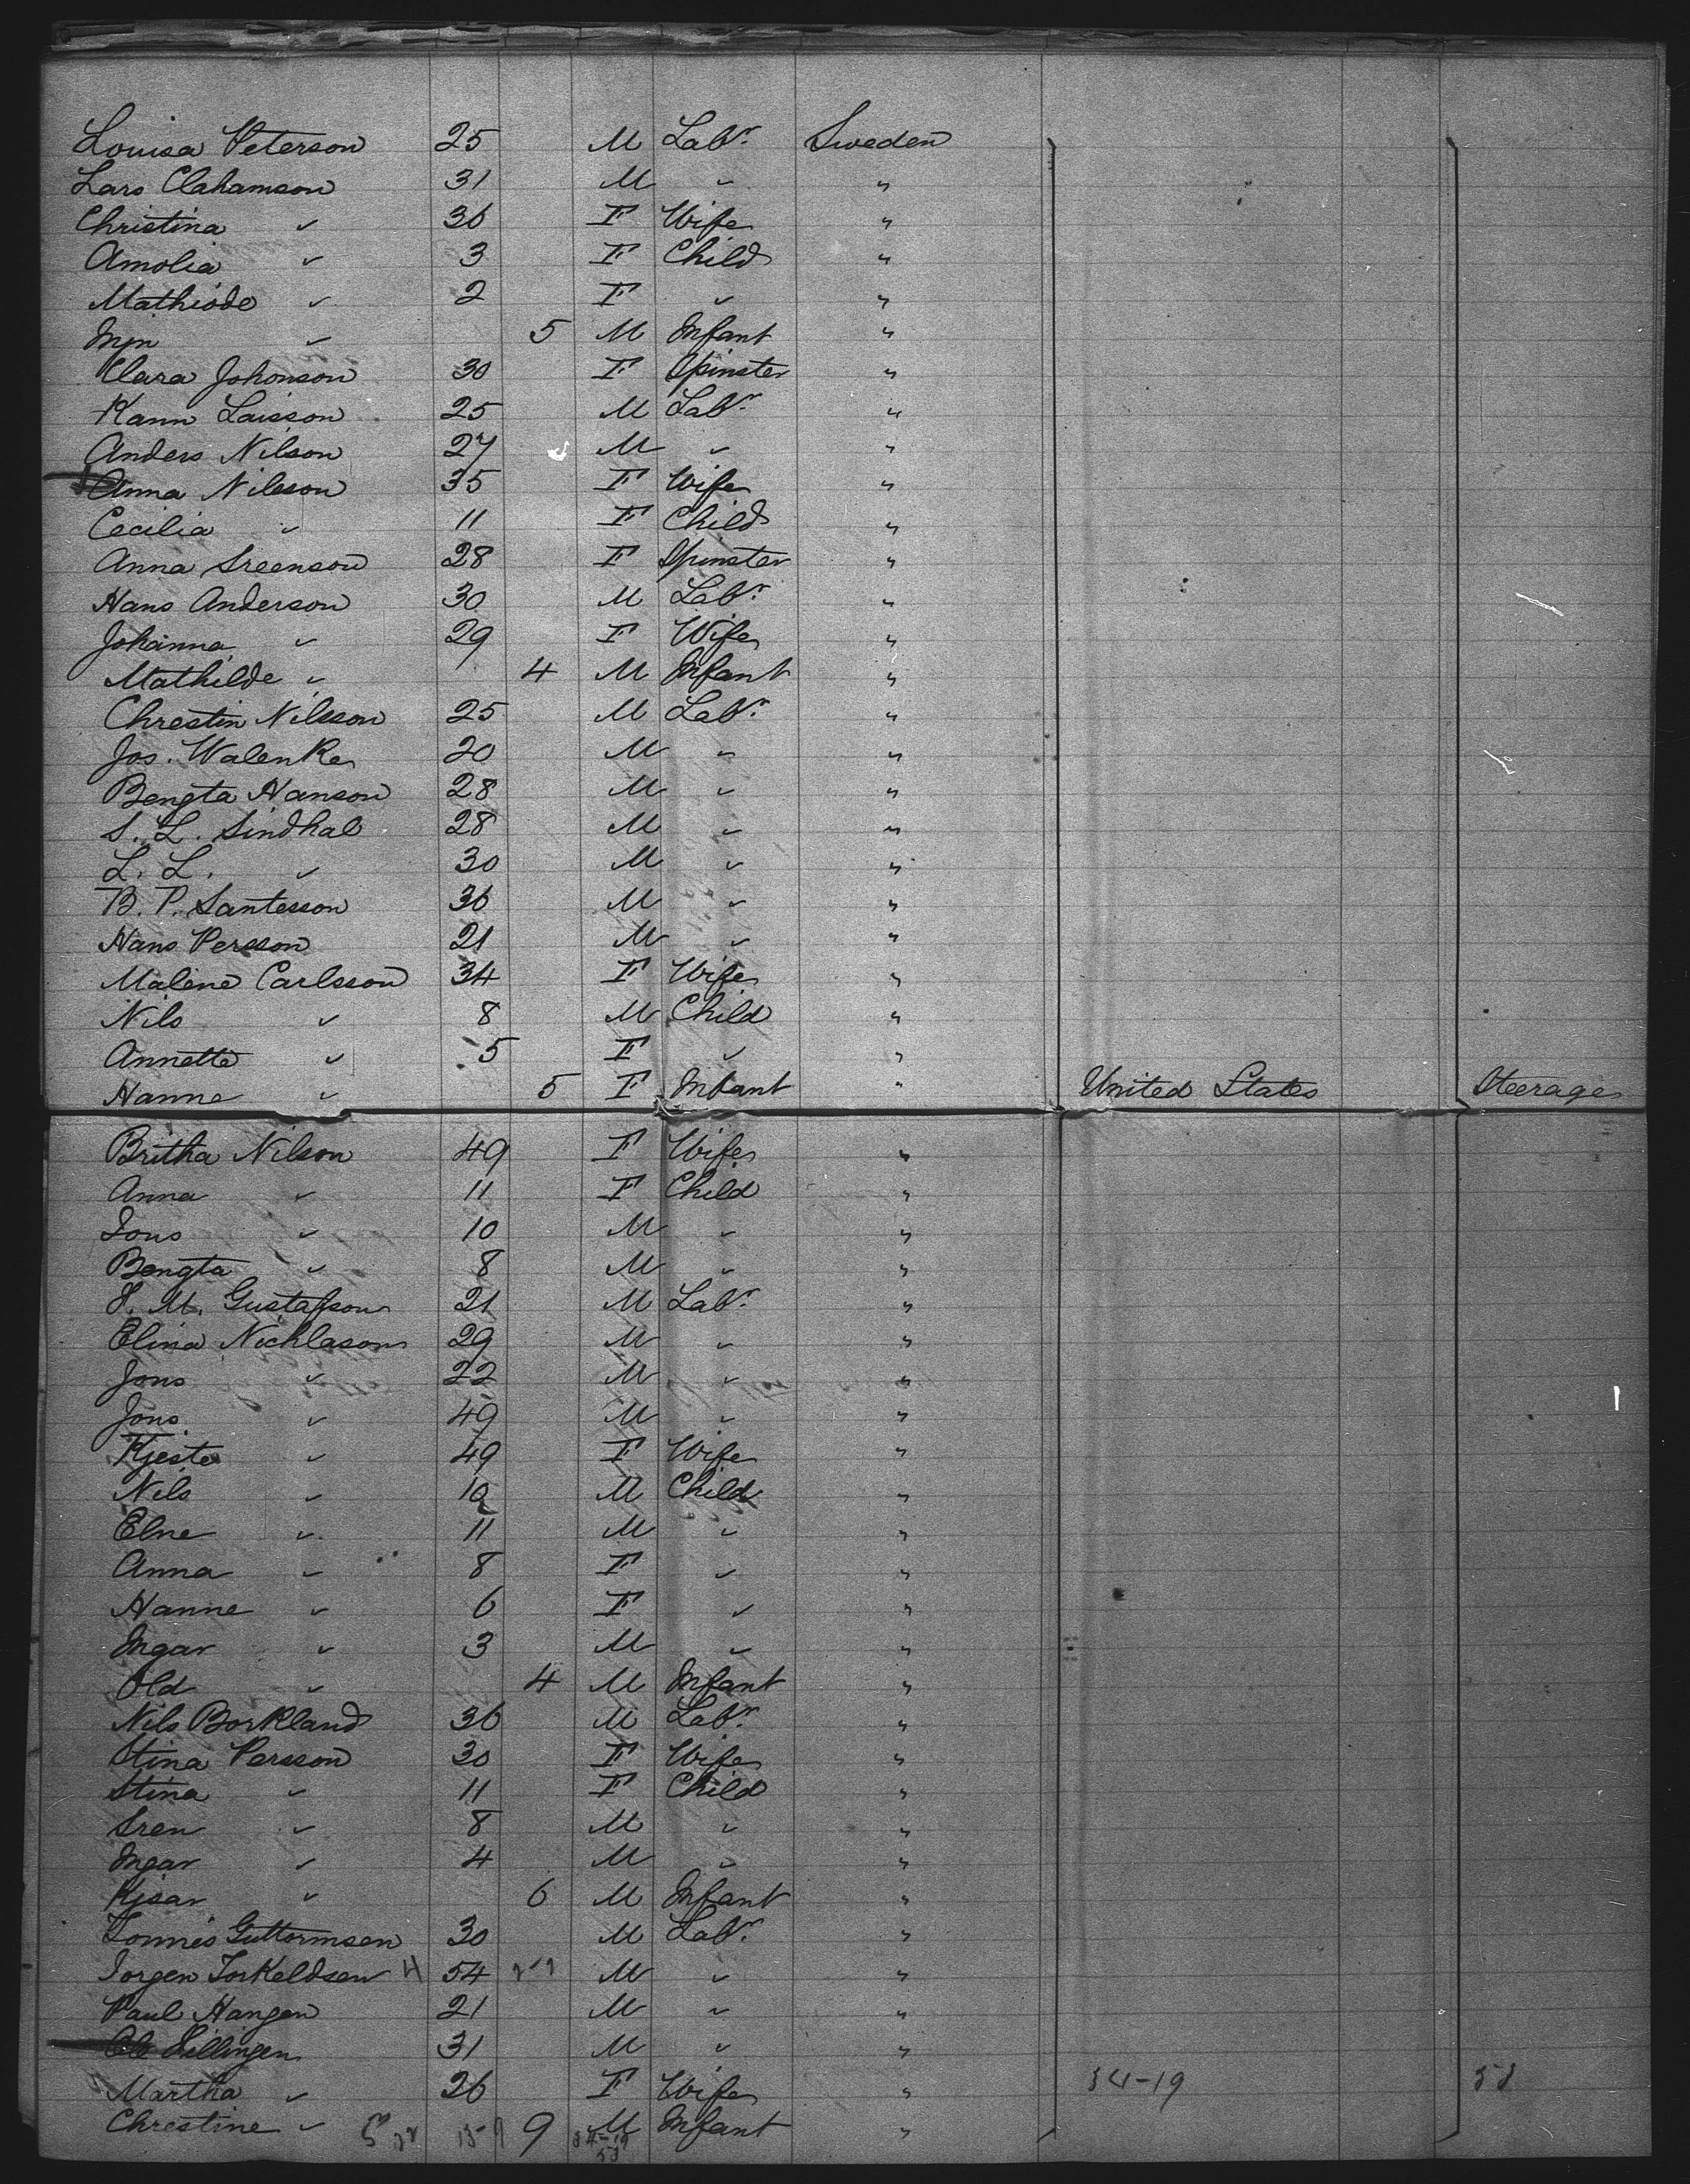 Louisa Peterson 25 M Labr. Sweden
Lars Clahamson 31 M " "
Christina " 36 F Wife "
Amolia " 3 F Child "
Mathiode " 2 F " "
" 5 M Infant "
Clara Johonson 30 F Spinster "
Kann Laisson 25 M Labr. "
Anders Nilson 27 M " "
Anna Nilsson 35 F Wife "
Cecilia " 11 F Child "
Anna Sreenson 28 F Spinster "
Hans Anderson 30 M Labr. "
Johanna " 29 F Wife "
Mathilde " 4 M Infant "
Chrestin Nilsson 25 M Labr. "
Jos. Walenke 20 M " "
Bengta Hanson 28 M " "
S. L. Sindhal 28 M " "
L. L. " 30 M " "
B. P. Santesson 36 M " "
Hans Persson 21 M " "
Malene Carlsson 34 F Wife "
Nils " 8 M Child "
Annette " 5 F " "
Hanne " 5 F Infant " United States Steerage
Britha Nilson 49 F Wife "
Anna " 11 F Child "
Jons " 10 M " "
Bengta " 8 M " "
M. Gustafson 21 M Labr. "
Elina Nichlason 29 M " "
Jons " 22 M " "
Jons " 49 M " "
Kjeste " 49 F Wife "
Nils " 10 M Child "
Elne " 11 M " "
Anna " 8 F " "
Hanne " 6 F " "
Ingar " 3 M " "
Old " 4 M Infant "
Nils Borkland 36 M Labr. "
Stina Persson 30 F Wife "
Stina " 11 F Child "
Sren " 8 M " "
Ingar " 4 M " "
Kjsar " 6 M Infant "
Tonnes Guttormsen 30 M Labr. "
Jorgen Torkeldsen 54 M " "
Paul Hangen 21 M " "
Ole Lillingen 31 M " "
Martha " 26 F Wife " 54-19 53
Chrestine " 9 M Infant "
54-19
53